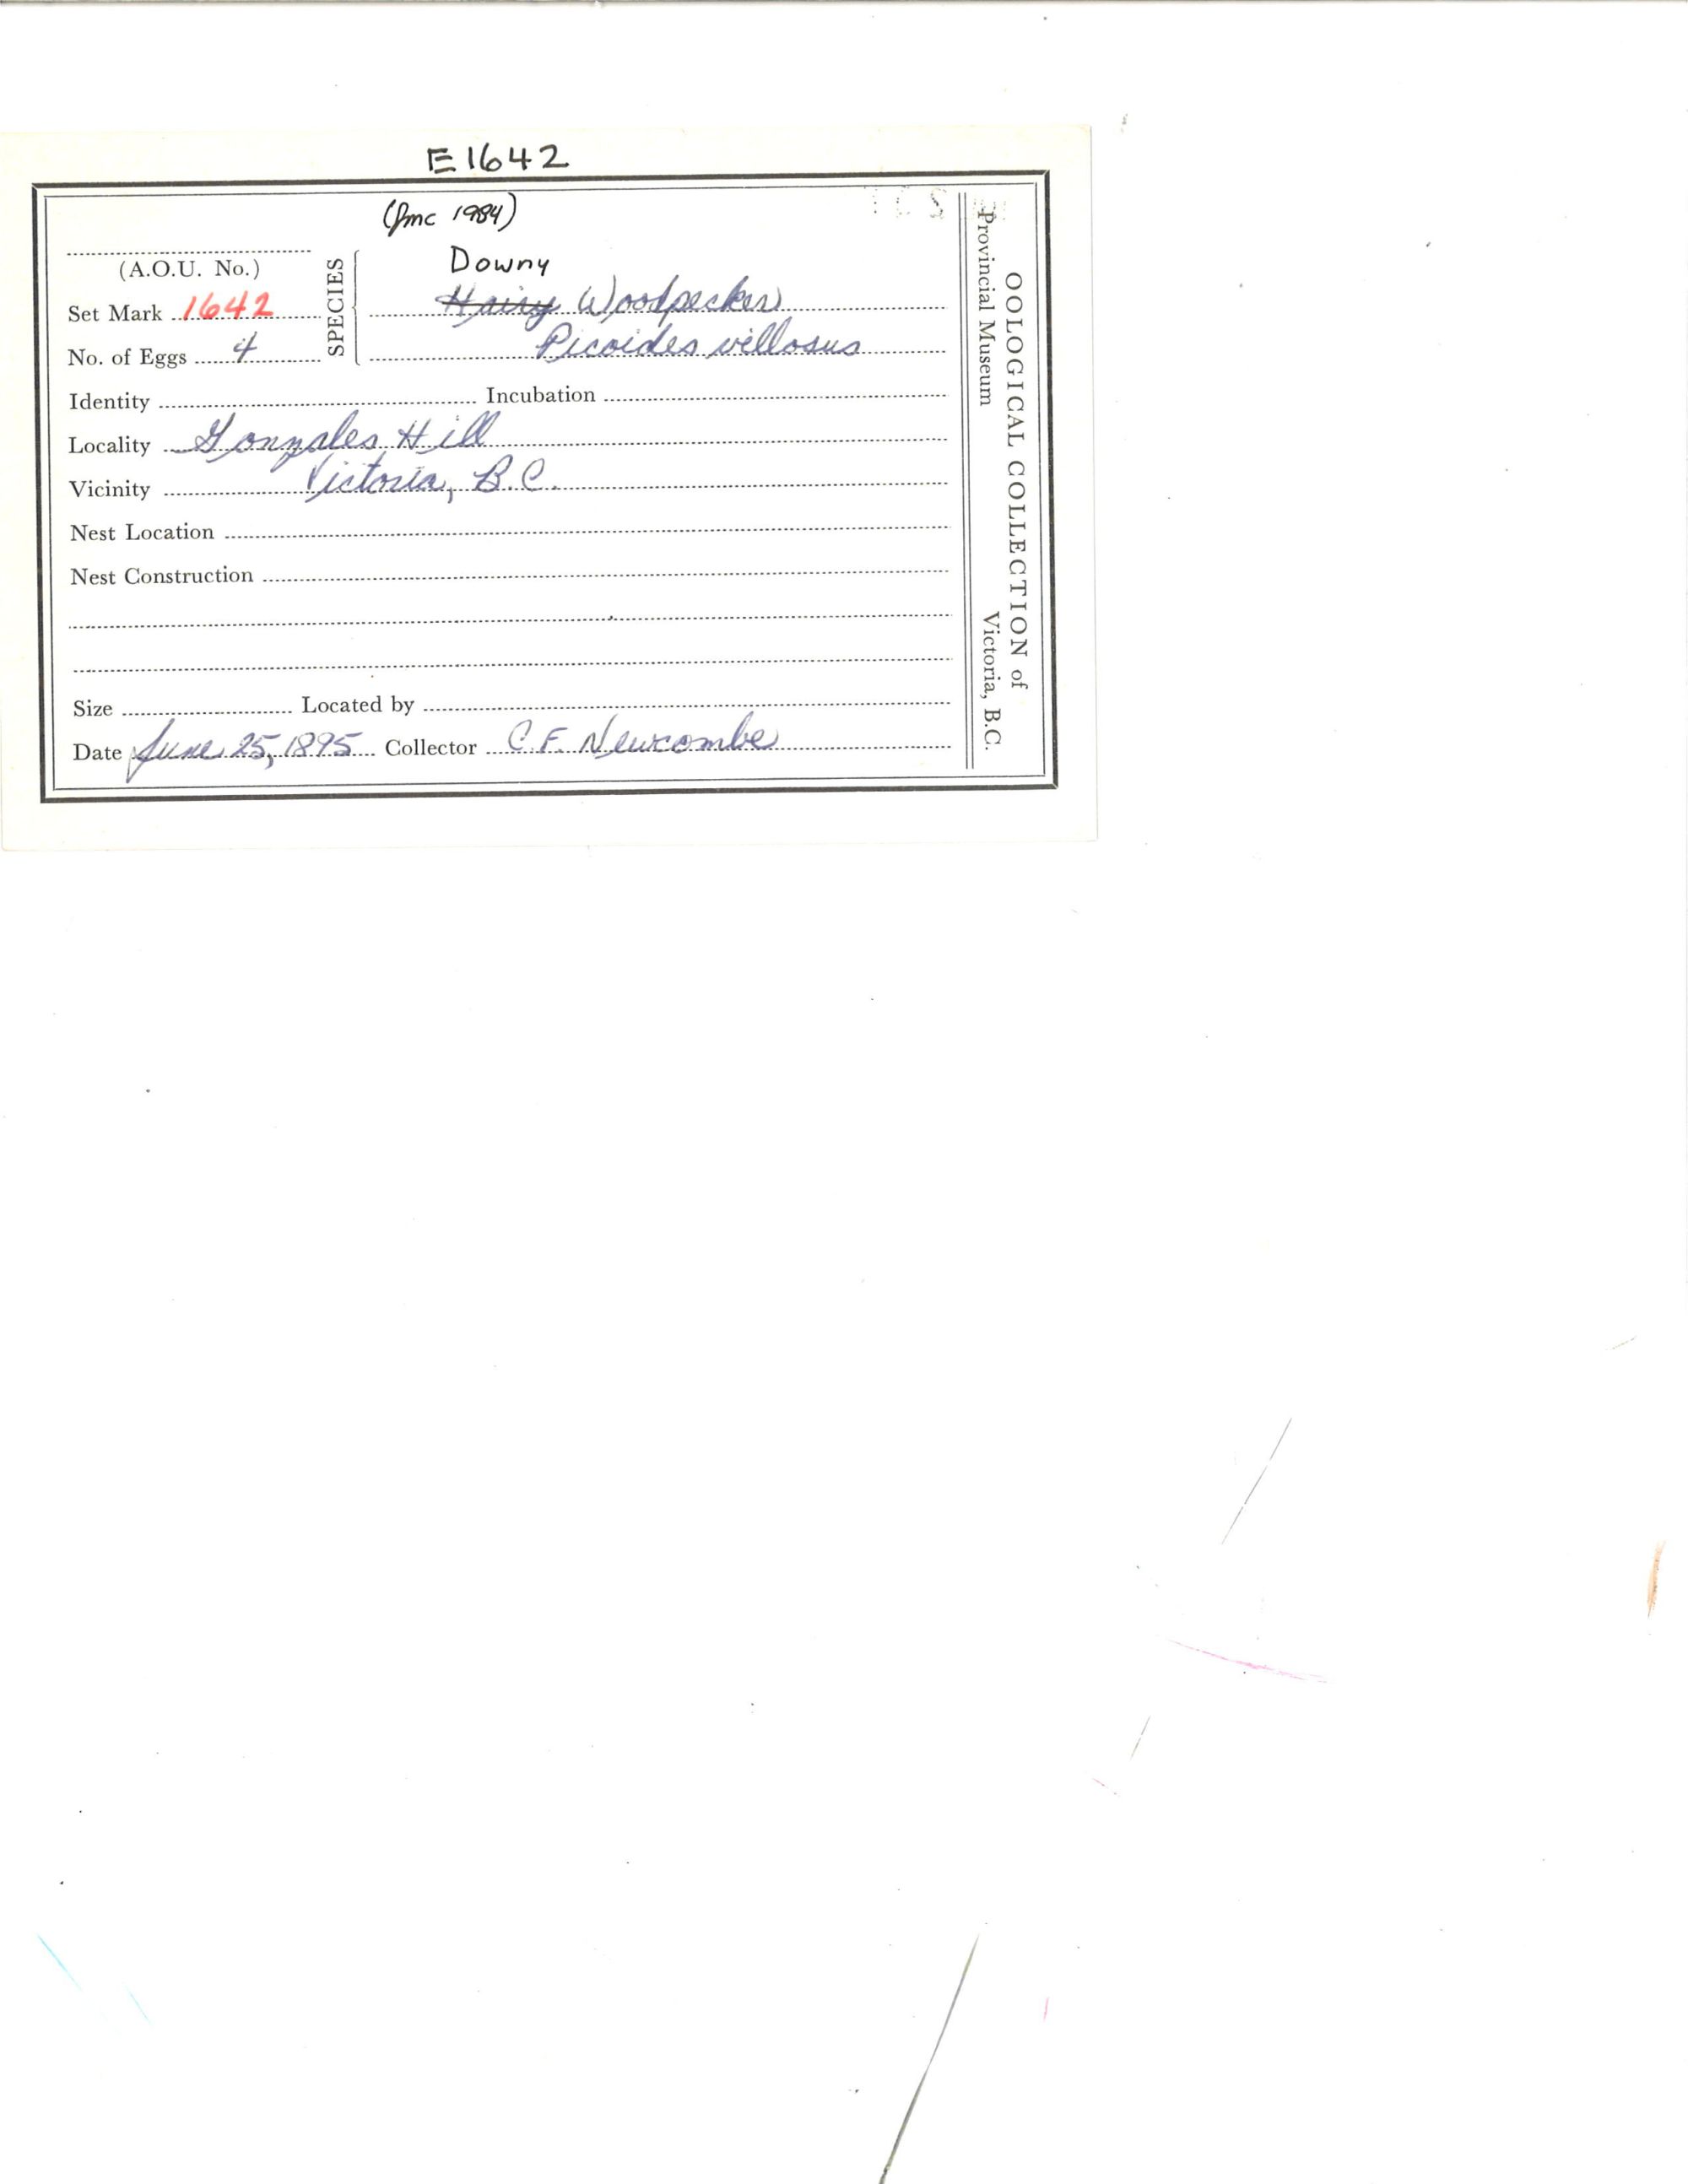 E1642
(Jmc 1984)
(A.O.U. No.)
SPECIES
Downy
Hairy Woodpecker
Picoides villosus
Set Mark 1642
No. of Eggs 4
Identity Incubation
Locality Gonzales Hill
Vicinity Victoria, B.C.
Nest Location
Nest Construction
Size Located by
Date June 25, 1895 Collector C.F. Newcombe
OOLOGICAL COLLECTION of
Provincial Museum Victoria, B.C.